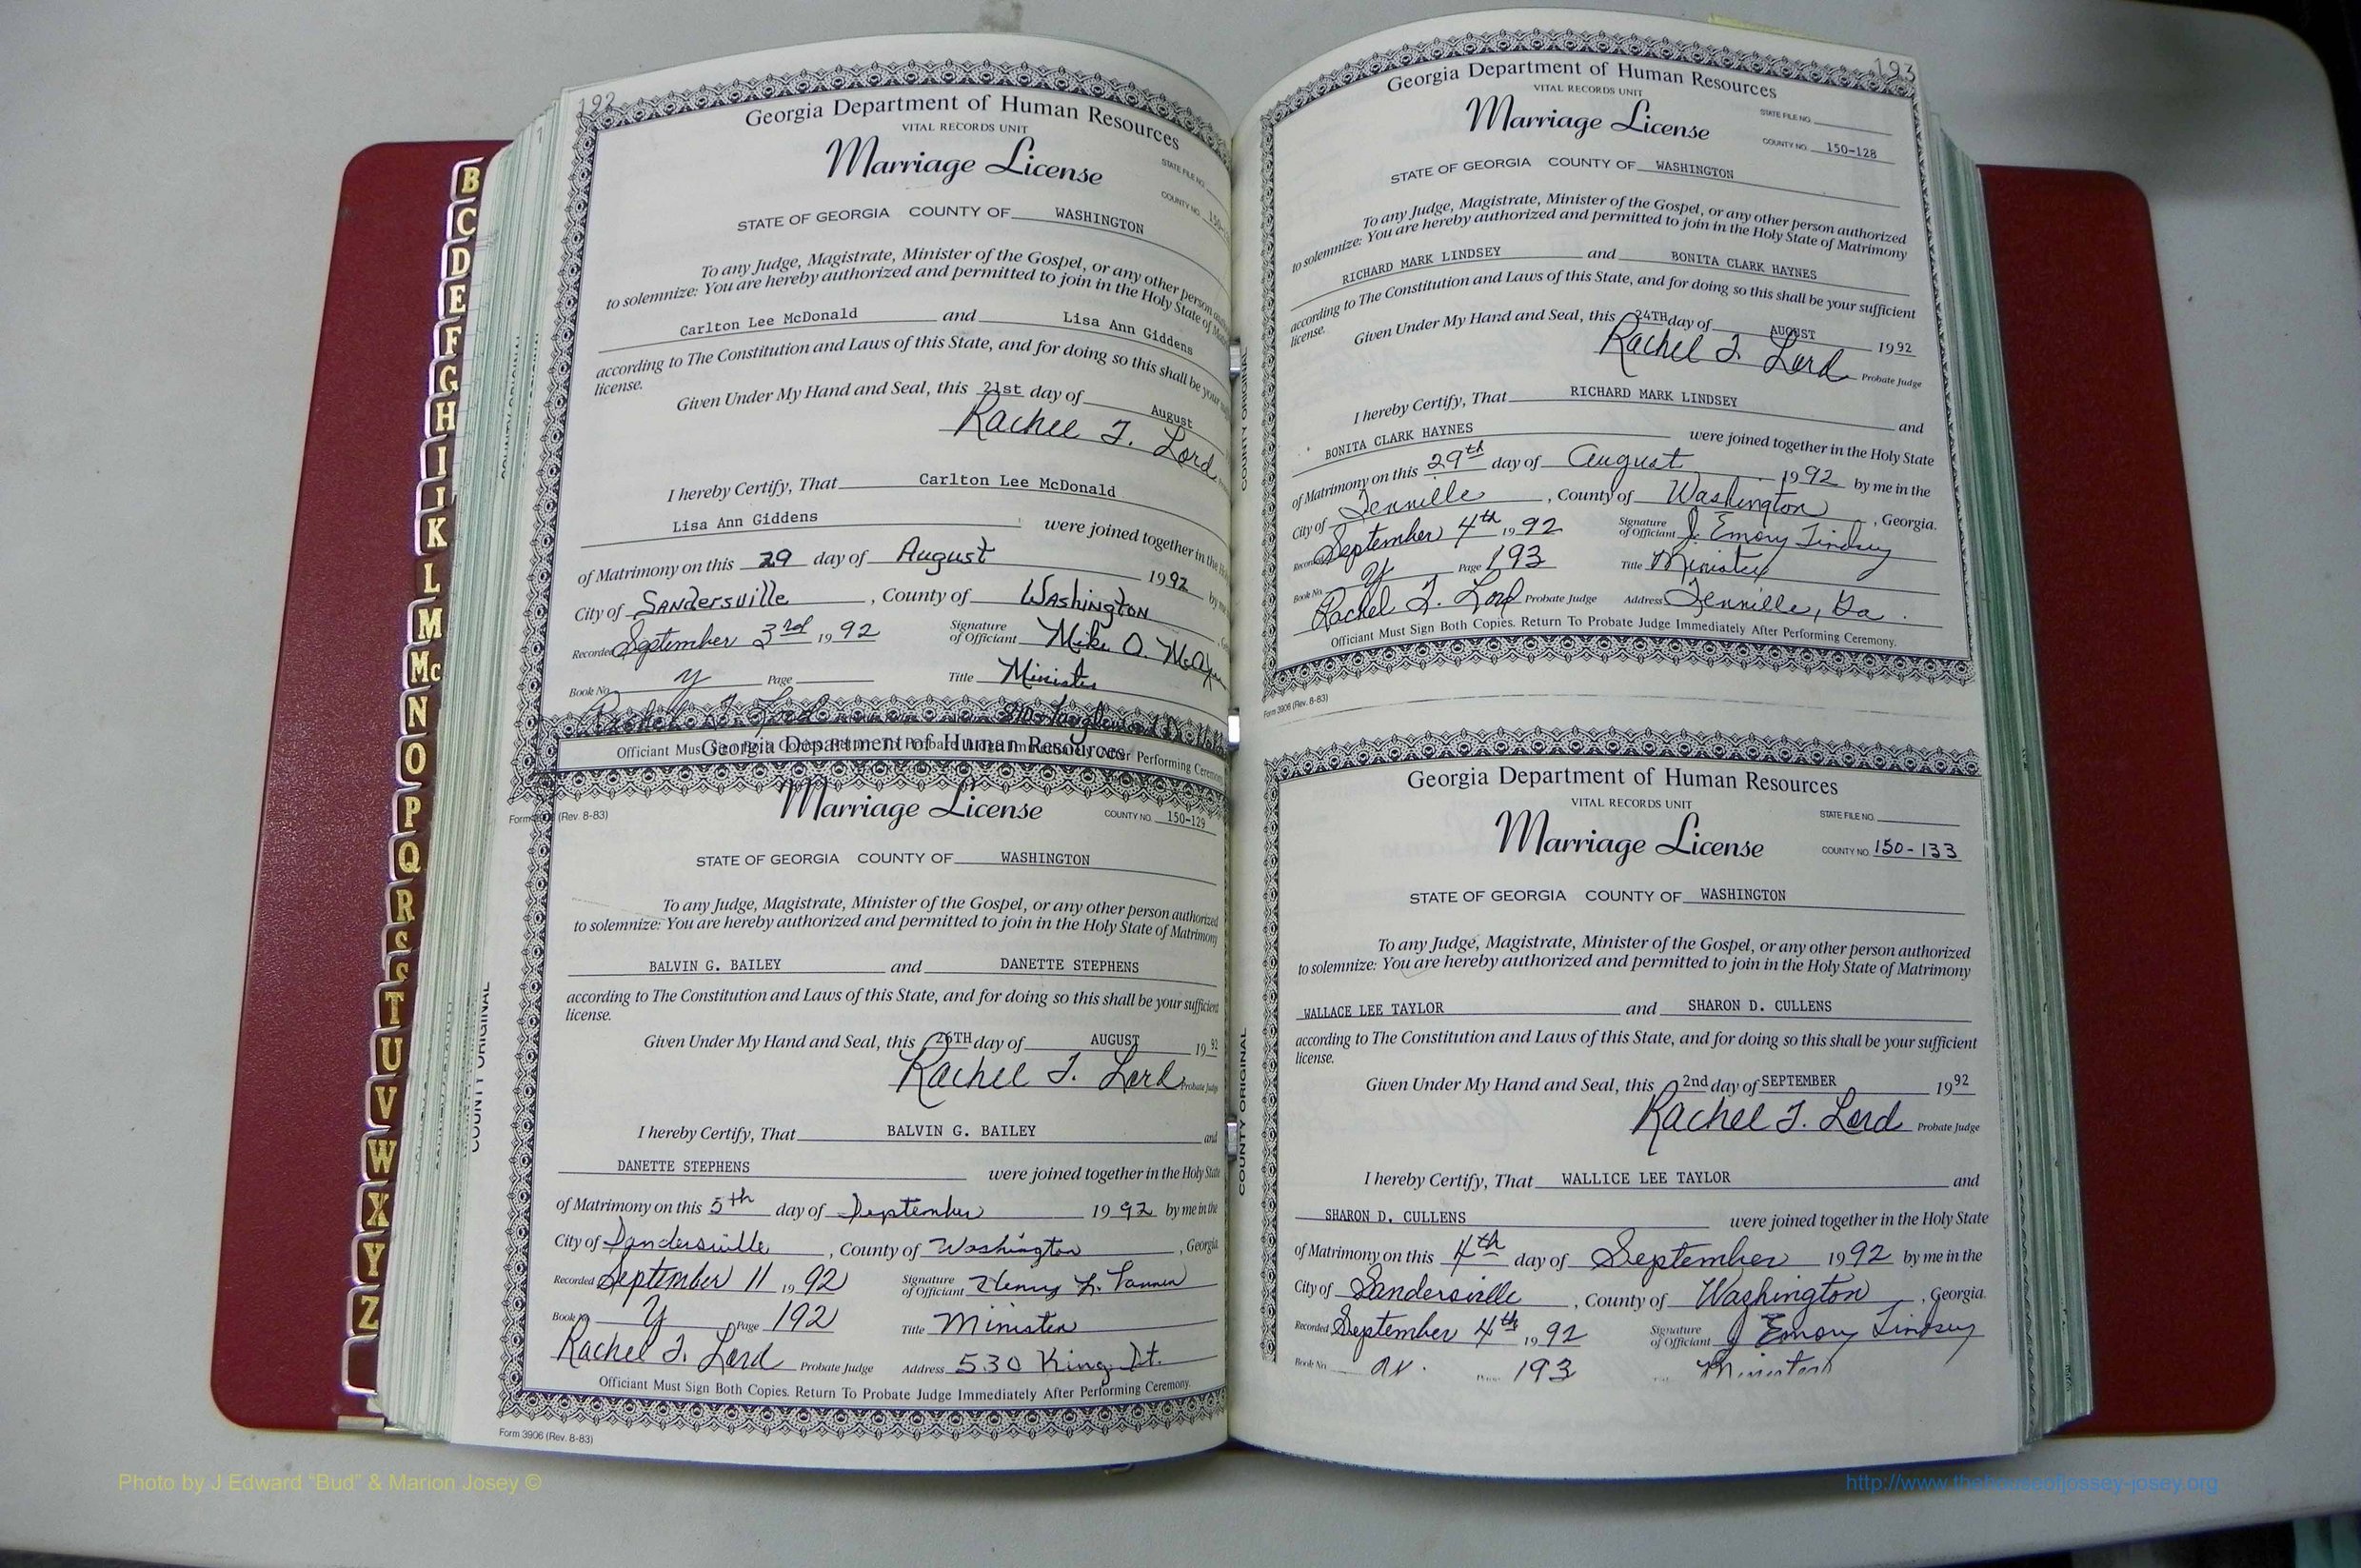 192
Georgia Department of Human Resources
VITAL RECORDS UNIT
Marriage License
STATE FILE NO.
COUNTY NO.
STATE OF GEORGIA COUNTY OF WASHINGTON
To any Judge, Magistrate, Minister of the Gospel, or any other person
to solemnize: You are hereby authorized and permitted to join in the Holy State of
Carlton Lee McDonald and Lisa Ann Giddens
according to The Constitution and Laws of this State, and for doing so this shall be your
license.
Given Under My Hand and Seal, this 21st day of August
Rachel T. Lord
I hereby Certify, That Carlton Lee McDonald
Lisa Ann Giddens were joined together in the
of Matrimony on this 29 day of August 1992 by me
City of Sandersville, County of Washington
Recorded September 3rd 1992 Signature of Officiant Mike O.
Book No. Y Page Title Minister
Rachel T. Lord
Officiant Must
Performing Ceremony
Form (Rev. 8-83)
Georgia Department of Human Resources
Marriage License
COUNTY NO. 150-129
STATE OF GEORGIA COUNTY OF WASHINGTON
To any Judge, Magistrate, Minister of the Gospel, or any other person authorized
to solemnize: You are hereby authorized and permitted to join in the Holy State of Matrimony
BALVIN G. BAILEY and DANETTE STEPHENS
according to The Constitution and Laws of this State, and for doing so this shall be your sufficient
license.
Given Under My Hand and Seal, this 26TH day of AUGUST 1992
Rachel T. Lord Probate Judge
I hereby Certify, That BALVIN G. BAILEY and
DANETTE STEPHENS were joined together in the Holy State
of Matrimony on this 5th day of September 1992 by me in the
City of Sandersville, County of Washington, Georgia
Recorded September 11 1992 Signature of Officiant Henry L. Tanner
Book No. Y Page 192 Title Minister
Rachel T. Lord Probate Judge Address 530 King St.
Officiant Must Sign Both Copies. Return To Probate Judge Immediately After Performing Ceremony.
Form 3906 (Rev. 8-83)
COUNTY ORIGINAL
B
C
D
E
F
G
H
I
J
K
L
M
Mc
N
O
P
Q
R
S
S
T
U
V
W
X
Y
Z
193
Georgia Department of Human Resources
VITAL RECORDS UNIT
Marriage License
STATE FILE NO.
COUNTY NO. 150-128
STATE OF GEORGIA COUNTY OF WASHINGTON
To any Judge, Magistrate, Minister of the Gospel, or any other person authorized
to solemnize: You are hereby authorized and permitted to join in the Holy State of Matrimony
RICHARD MARK LINDSEY and BONITA CLARK HAYNES
according to The Constitution and Laws of this State, and for doing so this shall be your sufficient
license.
Given Under My Hand and Seal, this 24TH day of AUGUST 1992
Rachel T. Lord Probate Judge
I hereby Certify, That RICHARD MARK LINDSEY and
BONITA CLARK HAYNES were joined together in the Holy State
of Matrimony on this 29th day of August 1992 by me in the
City of Tennille, County of Washington, Georgia.
Recorded September 4th 1992 Signature of Officiant J. Emory Lindsey
Book No. Y Page 193 Title Minister
Rachel T. Lord Probate Judge Address Tennille, Ga.
Officiant Must Sign Both Copies. Return To Probate Judge Immediately After Performing Ceremony.
Form 3906 (Rev. 8-83)
COUNTY ORIGINAL
Georgia Department of Human Resources
VITAL RECORDS UNIT
Marriage License
STATE FILE NO.
COUNTY NO. 150-133
STATE OF GEORGIA COUNTY OF WASHINGTON
To any Judge, Magistrate, Minister of the Gospel, or any other person authorized
to solemnize: You are hereby authorized and permitted to join in the Holy State of Matrimony
WALLACE LEE TAYLOR and SHARON D. CULLENS
according to The Constitution and Laws of this State, and for doing so this shall be your sufficient
license.
Given Under My Hand and Seal, this 2nd day of SEPTEMBER 1992
Rachel T. Lord Probate Judge
I hereby Certify, That WALLICE LEE TAYLOR and
SHARON D. CULLENS were joined together in the Holy State
of Matrimony on this 4th day of September 1992 by me in the
City of Sandersville, County of Washington, Georgia.
Recorded September 4th 1992 Signature of Officiant J Emory Lindsey
Book No. 193 Minister
COUNTY ORIGINAL
Photo by J Edward "Bud" & Marion Josey ©
http://www.thehouseofjossey-josey.org